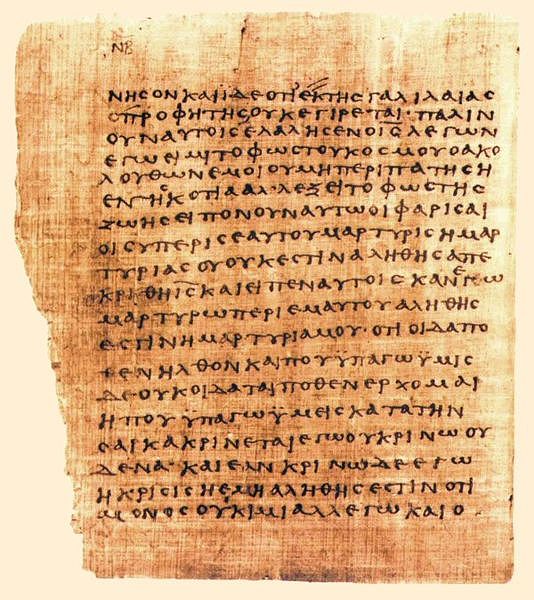 ΝΒ
ΝΗϹΟΝΚΑΙΪΔΕΟΤΙΕΚΤΗϹΓΑΛΙΛΑΙΑϹ
ΟΠΡΟΦΗΤΗϹΟΥΚΕΓΙΡΕΤΑΙ·ΠΑΛΙΝ
ΟΥΝΑΥΤΟΙϹΕΛΑΛΗϹΕΝΟΙ̅Ϲ̅ΛΕΓΩΝ
ΕΓΩΕΙΜΙΤΟΦΩϹΤΟΥΚΟϹΜΟΥΟΑΚΟ
ΛΟΥΘΩΝΕΜΟΙΟΥΜΗΠΕΡΙΠΑΤΗϹΗ
ΕΝΤΗϹΚΟΤΙΑΑΛΛΕΞΕΙΤΟΦΩϹΤΗϹ
ΖΩΗϹΕΙΠΟΝΟΥΝΑΥΤΩΟΙΦΑΡΙϹΑΙ
ΟΙϹΥΠΕΡΙϹΕΑΥΤΟΥΜΑΡΤΥΡΙϹΗΜΑΡ
ΤΥΡΙΑϹΟΥΟΥΚΕϹΤΙΝΑΛΗΘΗϹΑΠΕ
ΚΡΙΘΗΙ̅Ϲ̅ΚΑΙΕΙΠΕΝΑΥΤΟΙϹΚΑΝΕΓΩ
ΜΑΡΤΥΡΩΠΕΡΙΕΜΑΥΤΟΥΑΛΗΘΗϹ
ΕϹΤΙΝΗΜΑΡΤΥΡΙΑΜΟΥΟΤΙΟΙΔΑΠΟ
ΘΕΝΗΛΘΟΝΚΑΙΠΟΥΫΠΑΓΩΫΜΙϹ
ΔΕΟΥΚΟΙΔΑΤΑΙΠΟΘΕΝΕΡΧΟΜΑΙ
ΗΠΟΥΫΠΑΓΩΫΜΕΙϹΚΑΤΑΤΗΝ
ϹΑΡΚΑΚΡΙΝΕΤΑΙΕΓΩΟΥΚΡΙΝΩΟΥ
ΔΕΝΑ·ΚΑΙΕΑΝΚΡΙΝΩΔΕΕΓΩ
ΗΚΡΙϹΙϹΗΕΜΗΑΛΗΘΗϹΕϹΤΙΝΟΤΙ
ΜΟΝΟϹΟΥΚΙΜΙΑΛΛΕΓΩΚΑΙΟ